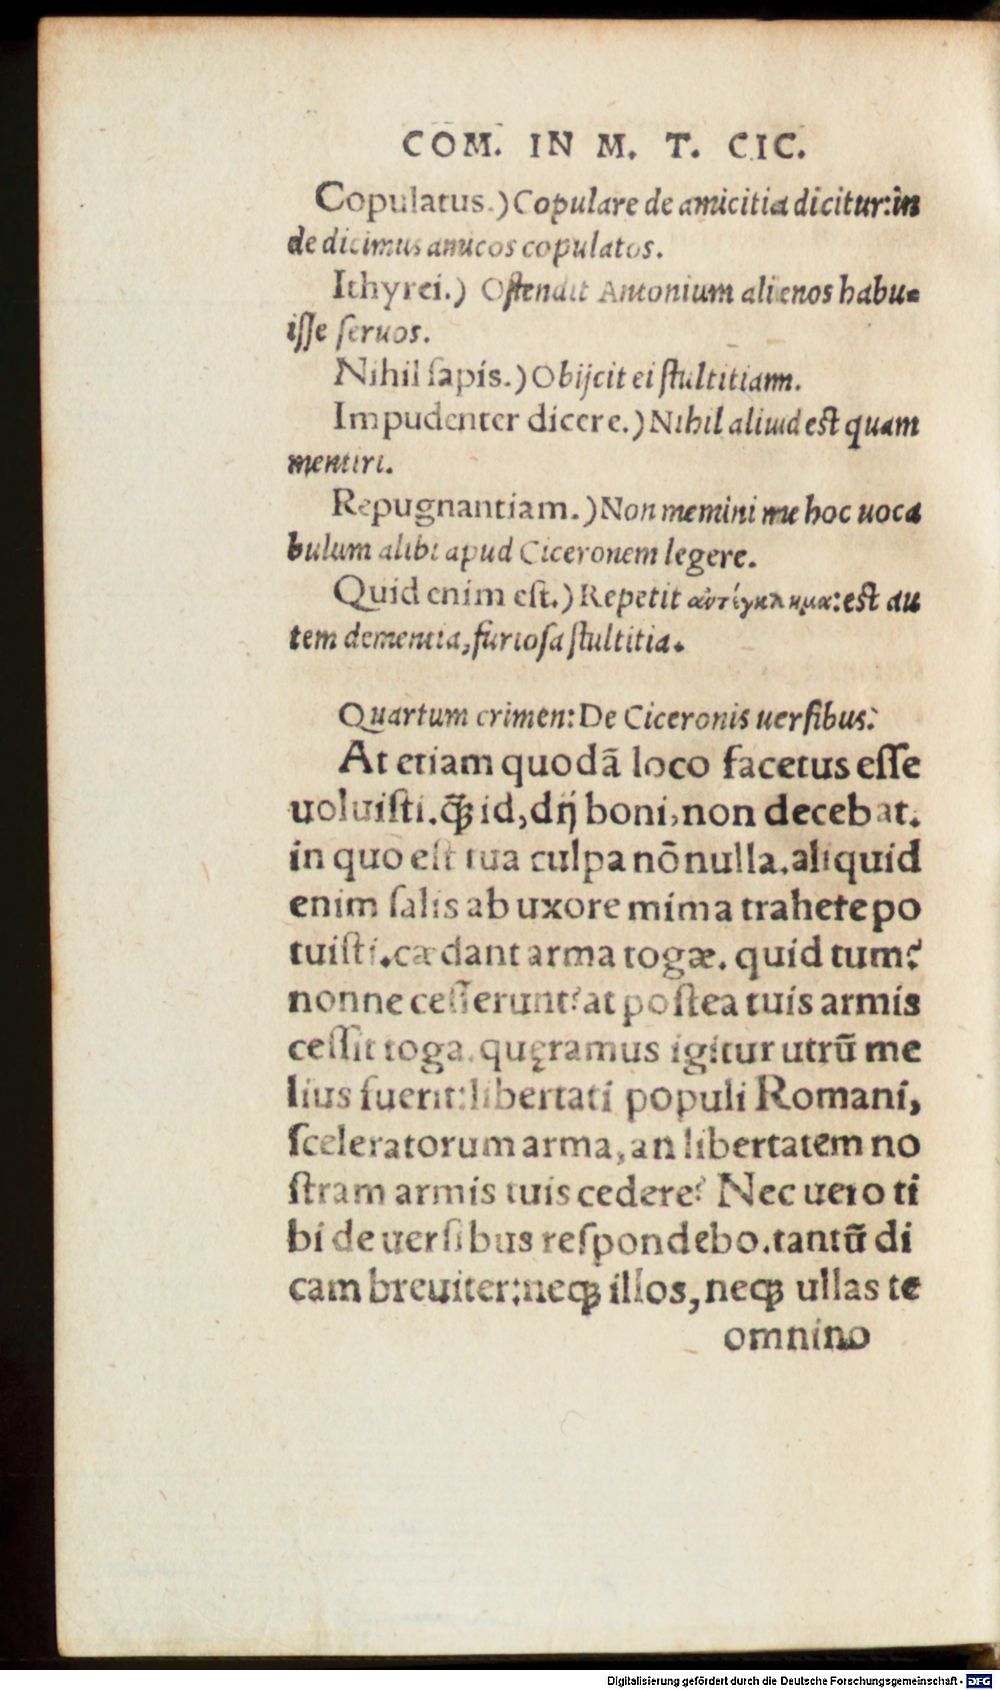 COM. IN M. T. CIC.
Copulatus.) Copulare de amicitia dicitur: in
de dicimus amicos copulatos.
Ithyrei.) Ostendit Antonium alienos habu-
iſſe ſeruos.
Nihil ſapis.) Obijcit ei ſtultitiam.
Impudenter dicere.) Nihil aliud eſt quam
mentiri.
Repugnantiam.) Non memini me hoc uoca
bulum alibi apud Ciceronem legere.
Quid enim eſt.) Repetit ἀντίγκλημα: eſt au
tem dementia, furioſa ſtultitia.
Quartum crimen: De Ciceronis uerſibus.
At etiam quodã loco facetus eſſe
uoluiſti. ꝗ̃ꝫ id, dij boni, non decebat.
in quo eſt tua culpa nõ nulla. aliquid
enim ſalis ab uxore mima trahere po
tuiſti. cædant arma togæ. quid tum?
nonne ceſſerunt? at poſtea tuis armis
ceſſit toga. quęramus igitur utrũ me
lius fuerit: libertati populi Romani,
ſceleratorum arma, an libertatem no
ſtram armis tuis cedere? Nec uero ti
bi de uerſibus reſpondebo. tantũ di
cam breuiter: neqꝫ illos, neqꝫ ullas te
omnino
Digitalisierung gefördert durch die Deutsche Forschungsgemeinschaft - DFG